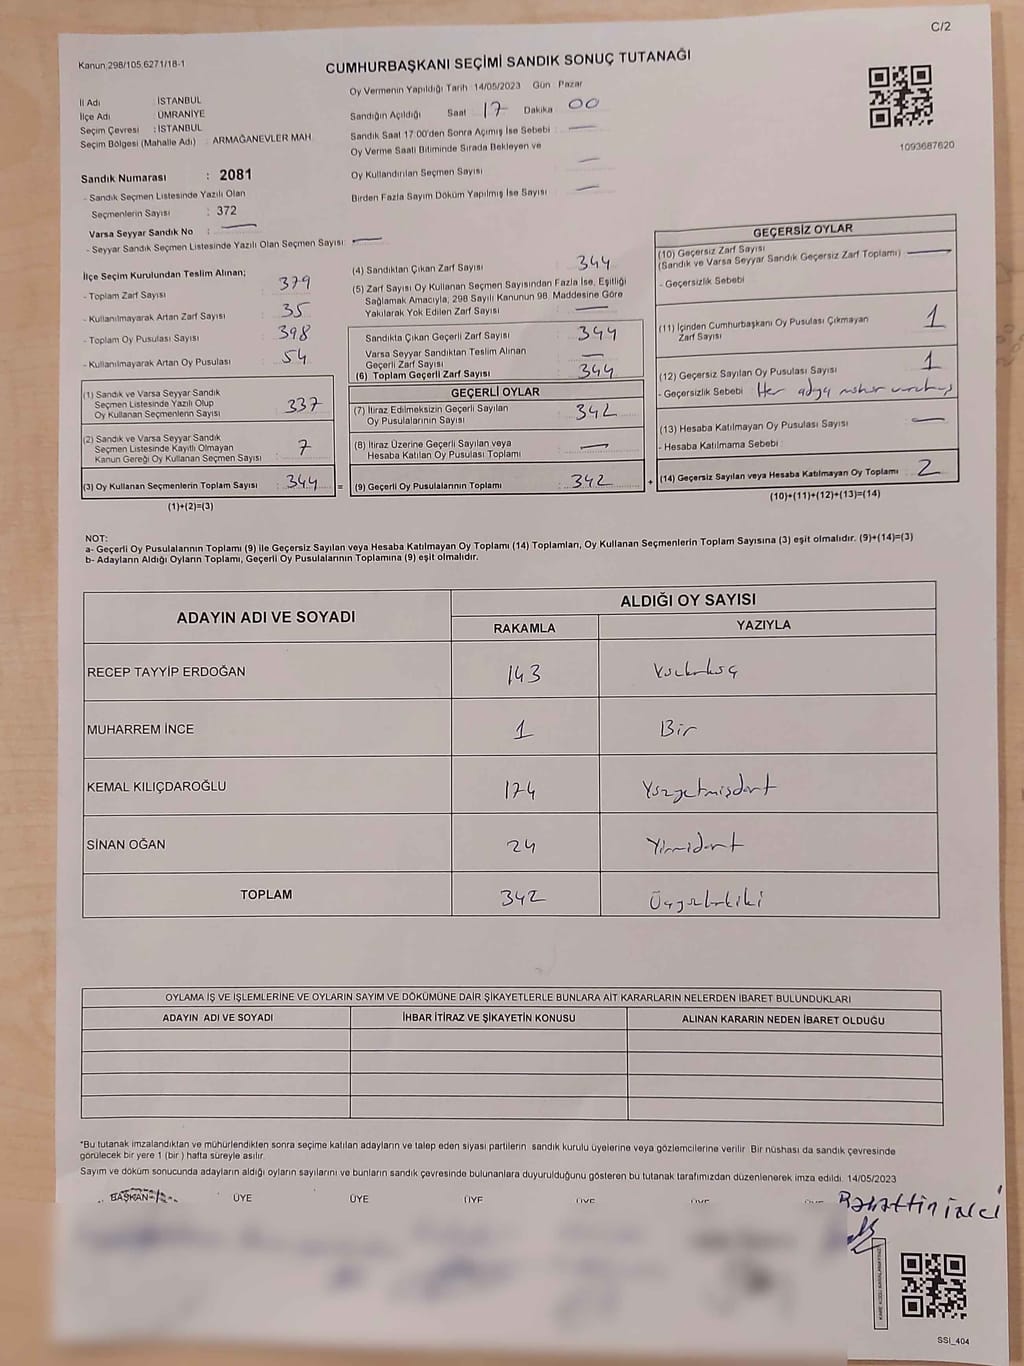 C/2
Kanun:298/105,6271/18-1
CUMHURBAŞKANI SEÇİMİ SANDIK SONUÇ TUTANAĞI
İl Adı : İSTANBUL
İlçe Adı : ÜMRANİYE
Seçim Çevresi : İSTANBUL
Seçim Bölgesi (Mahalle Adı) : ARMAĞANEVLER MAH.
Oy Vermenin Yapıldığı Tarih :14/05/2023 Gün : Pazar
Sandığın Açıldığı Saat : 17 Dakika : 00
Sandık Saat 17:00'den Sonra Açımış İse Sebebi : —
Oy Verme Saati Bitiminde Sırada Bekleyen ve
Oy Kullandırılan Seçmen Sayısı : —
Birden Fazla Sayım Döküm Yapılmış İse Sayısı : —
1093687620
Sandık Numarası : 2081
- Sandık Seçmen Listesinde Yazılı Olan
Seçmenlerin Sayısı : 372
Varsa Seyyar Sandık No : —
- Seyyar Sandık Seçmen Listesinde Yazılı Olan Seçmen Sayısı: —
İlçe Seçim Kurulundan Teslim Alınan;
- Toplam Zarf Sayısı : 379
- Kullanılmayarak Artan Zarf Sayısı : 35
- Toplam Oy Pusulası Sayısı : 398
- Kullanılmayarak Artan Oy Pusulası : 54
(1) Sandık ve Varsa Seyyar Sandık
Seçmen Listesinde Yazılı Olup
Oy Kullanan Seçmenlerin Sayısı : 337
(2) Sandık ve Varsa Seyyar Sandık
Seçmen Listesinde Kayıtlı Olmayan
Kanun Gereği Oy Kullanan Seçmen Sayısı : 7
(3) Oy Kullanan Seçmenlerin Toplam Sayısı : 344 =
(1)+(2)=(3)
(4) Sandıktan Çıkan Zarf Sayısı : 344
(5) Zarf Sayısı Oy Kullanan Seçmen Sayısından Fazla İse, Eşitliği
Sağlamak Amacıyla, 298 Sayılı Kanunun 98. Maddesine Göre
Yakılarak Yok Edilen Zarf Sayısı : —
Sandıkta Çıkan Geçerli Zarf Sayısı : 344
Varsa Seyyar Sandıktan Teslim Alınan
Geçerli Zarf Sayısı : —
(6) Toplam Geçerli Zarf Sayısı : 344
GEÇERLİ OYLAR
(7) İtiraz Edilmeksizin Geçerli Sayılan
Oy Pusulasının Sayısı : 342
(8) İtiraz Üzerine Geçerli Sayılan veya
Hesaba Katılan Oy Pusulası Toplamı : —
(9) Geçerli Oy Pusulalarının Toplamı : 342 +
GEÇERSİZ OYLAR
(10) Geçersiz Zarf Sayısı
(Sandık ve Varsa Seyyar Sandık Geçersiz Zarf Toplamı) : —
- Geçersizlik Sebebi
(11) İçinden Cumhurbaşkanı Oy Pusulası Çıkmayan
Zarf Sayısı 1
(12) Geçersiz Sayılan Oy Pusulası Sayısı : 1
- Geçersizlik Sebebi : Her adaya mühür vurulmuş
(13) Hesaba Katılmayan Oy Pusulası Sayısı : —
- Hesaba Katılmama Sebebi :
(14) Geçersiz Sayılan veya Hesaba Katılmayan Oy Toplamı : 2
(10)+(11)+(12)+(13)=(14)
NOT:
a- Geçerli Oy Pusulalarının Toplamı (9) ile Geçersiz Sayılan veya Hesaba Katılmayan Oy Toplamı (14) Toplamları, Oy Kullanan Seçmenlerin Toplam Sayısına (3) eşit olmalıdır. (9)+(14)=(3)
b- Adayların Aldığı Oyların Toplamı, Geçerli Oy Pusulalarının Toplamına (9) eşit olmalıdır.
ADAYIN ADI VE SOYADI ALDIĞI OY SAYISI
RAKAMLA YAZIYLA
RECEP TAYYİP ERDOĞAN 143
MUHARREM İNCE 1 Bir
KEMAL KILIÇDAROĞLU 174 Yüzyetmişdört
SİNAN OĞAN 24 Yirmidört
TOPLAM 342 Üçyüzkırkiki
OYLAMA İŞ VE İŞLEMLERİNE VE OYLARIN SAYIM VE DÖKÜMÜNE DAİR ŞİKAYETLERLE BUNLARA AİT KARARLARIN NELERDEN İBARET BULUNDUKLARI
ADAYIN ADI VE SOYADI İHBAR İTİRAZ VE ŞİKAYETİN KONUSU ALINAN KARARIN NEDEN İBARET OLDUĞU
*Bu tutanak imzalandıktan ve mühürlendikten sonra seçime katılan adayların ve talep eden siyasi partilerin sandık kurulu üyelerine veya gözlemcilerine verilir. Bir nüshası da sandık çevresinde
görülecek bir yere 1 (bir ) hafta süreyle asılır.
Sayım ve döküm sonucunda adayların aldığı oyların sayılarını ve bunların sandık çevresinde bulunanlara duyurulduğunu gösteren bu tutanak tarafımızdan düzenlenerek imza edildi. 14/05/2023
BAŞKAN ÜYE ÜYE ÜYE ÜYE ÜYE
SSI_404